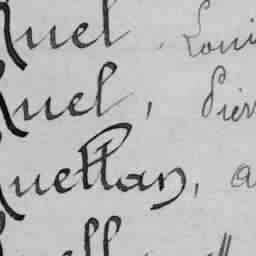 Ruel. Loui
Ruel, Pier
Ruellan, a